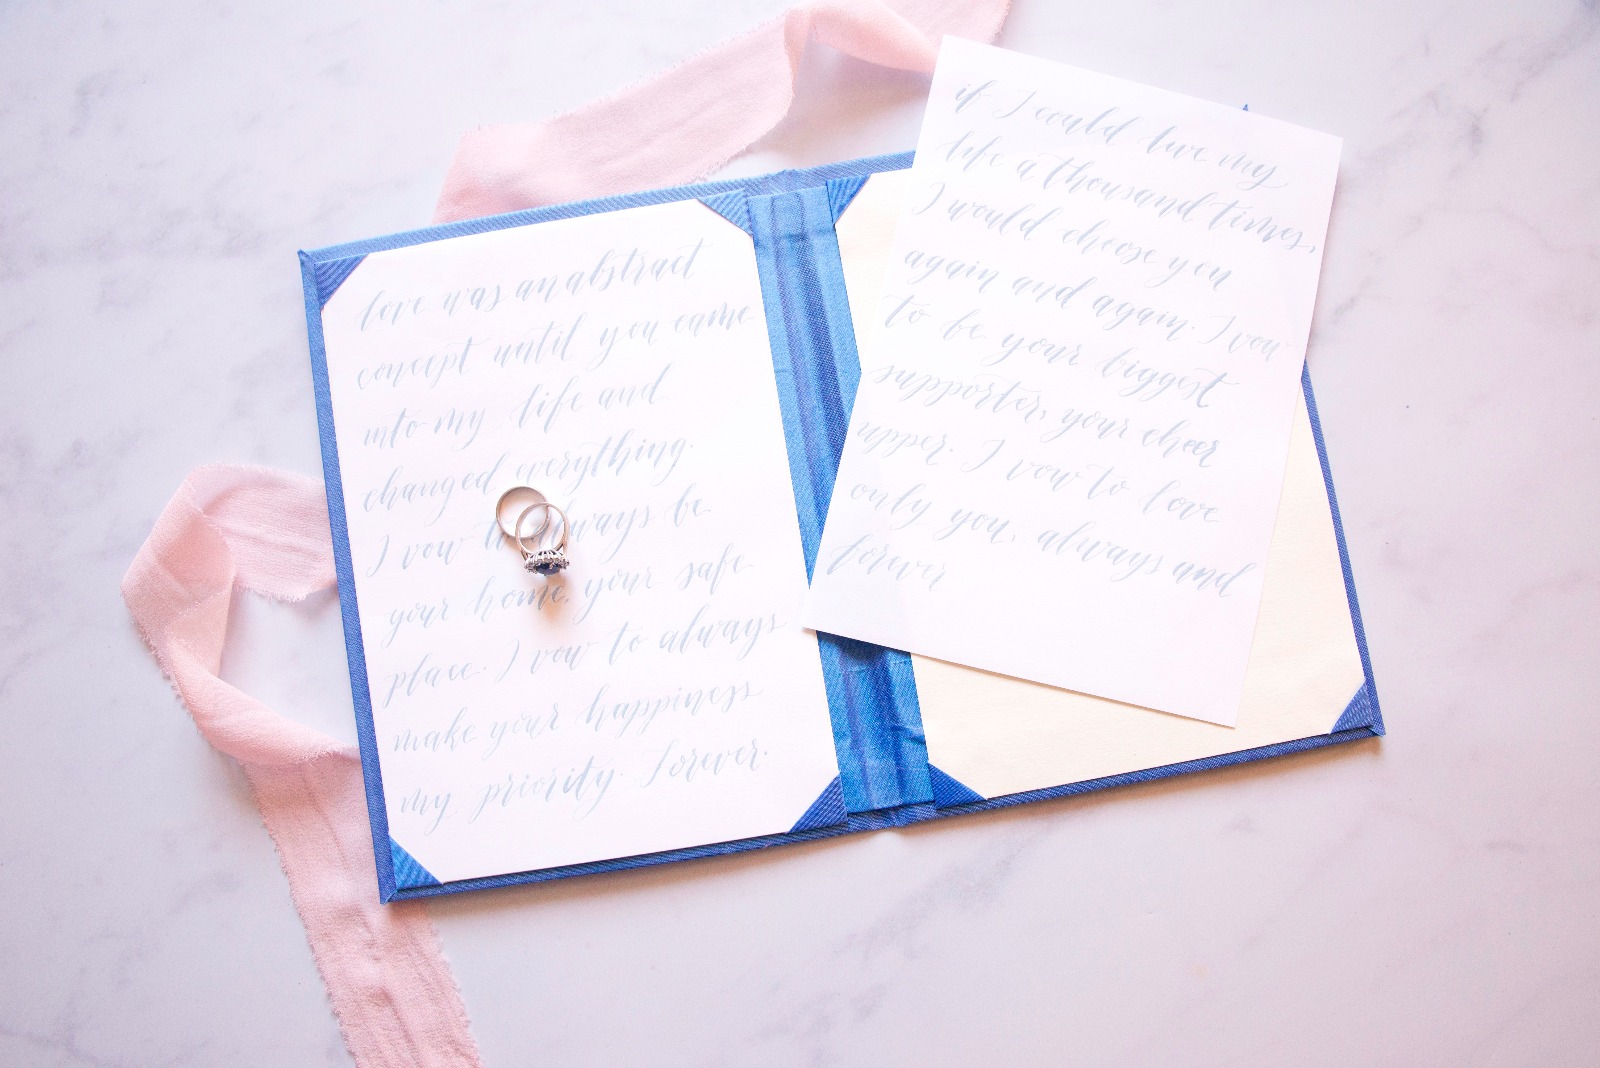 love was an abstract
concept until you came
into my life and
changed everything.
I vow to always be
your home, your safe
place. I vow to always
make your happiness
my priority. Forever.
if I could live my
life a thousand times,
I would choose you
again and again. I vow
to be your biggest
supporter, your cheer
upper. I vow to love
only you, always and
forever